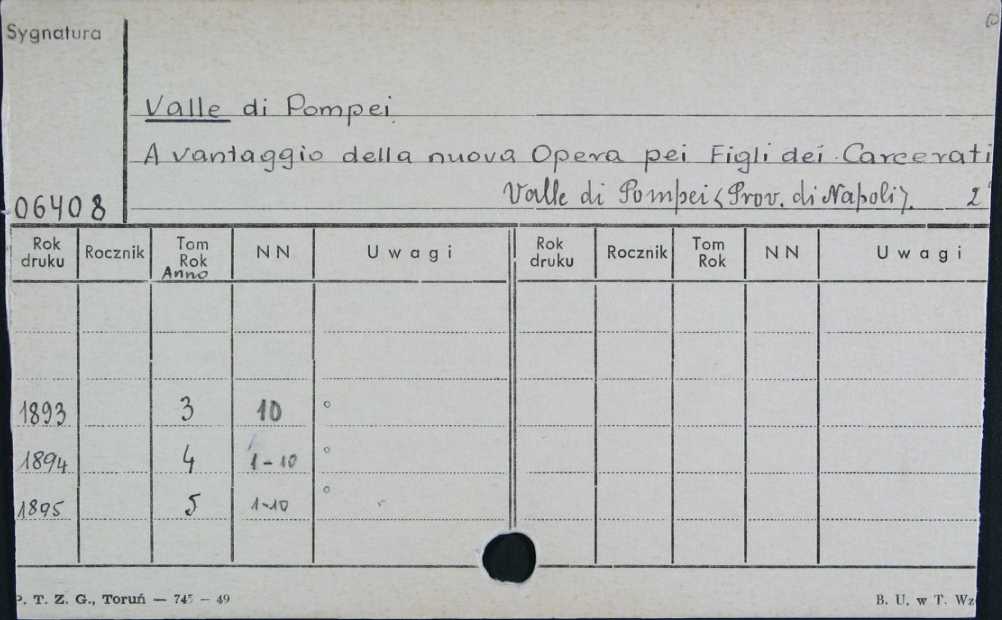 Sygnatura
Valle di Pompei.
A vantaggio della nuova Opera pei Figli dei Carcerati
06408 Valle di Pompei (Prov. di Napoli). 2°
Rok druku Rocznik Tom Rok Anno NN Uwagi Rok druku Rocznik Tom Rok NN Uwagi
1893 3 10 °
1894 4 1-10 °
1895 5 1-10 °
P. T. Z. G., Toruń — 745 — 49 B. U. w T. Wz